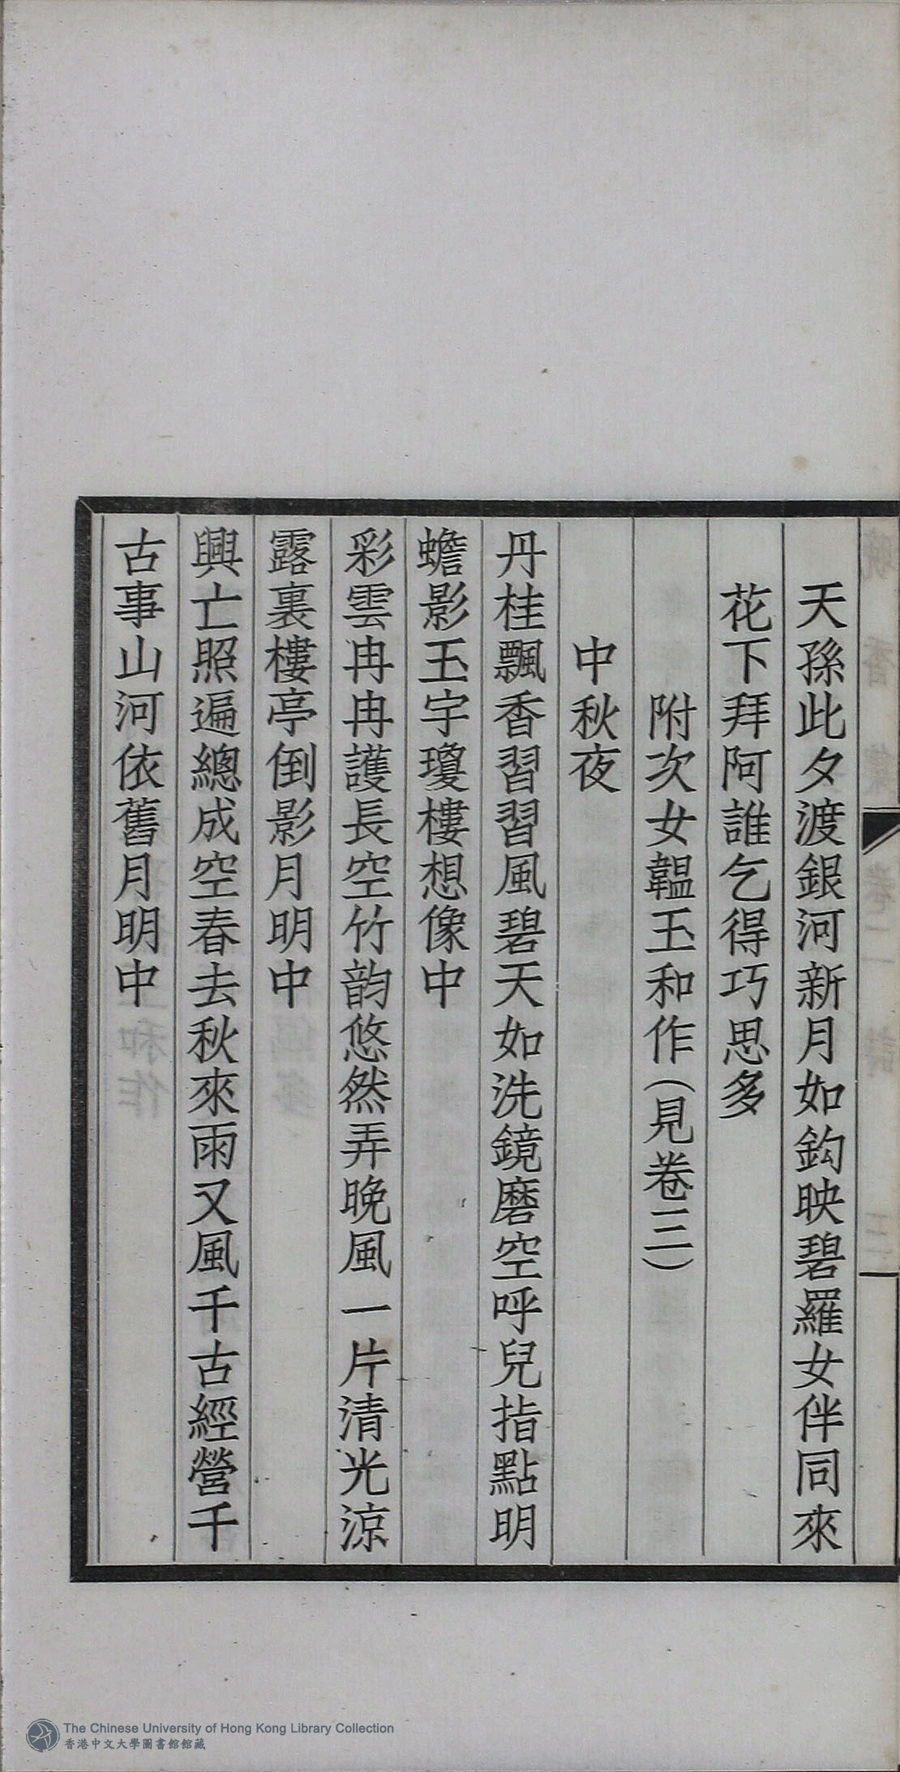 天孫此夕渡銀河新月如鈎映碧羅女伴同來
花下拜阿誰乞得巧思多
附次女韞玉和作(見卷三)
中秋夜
丹桂飄香習習風碧天如洗鏡磨空呼兒指點明
蟾影玉宇瓊樓想像中
彩雲冉冉護長空竹韵悠然弄晚風一片清光涼
露裏樓亭倒影月明中
興亡照遍總成空春去秋來雨又風千古經營千
古事山河依舊月明中
The Chinese University of Hong Kong Library Collection
香港中文大學圖書館館藏